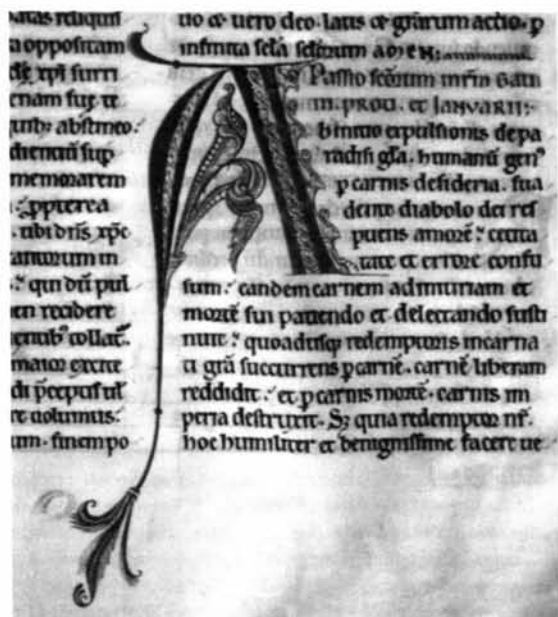 natas reliqui
a oppositam
de xp̄i surri
enam sue te
quib; abstineo.
dientiū sup
memorarem
ꝓpterea
ubi dn̄s xp̄c
tantorum in
qui dū pul
en recidere
collat
maior excite
di p̄ceptis ut
te uolumus.
um. finem po
tio & uero deo. latis & grārum actio. p
infinita sc̄la sc̄lorum amen.
Passio sc̄orum mr̄m Gau
ini. proti. et Januarii.
A b initio expulsionis de pa
radisi gl̄a. humanū gen⁹
p carnis desideria. sua
dente diabolo dei res
puens amorē. cecita
tate et errore confu
sum. eandem carnem ad iniuriam et
mortē sui patiendo et delectando susti
nuit. quoadusq; redemptoris incarna
ti gr̄a succurrens p carnē. carnē liberam
reddidit. et p carnis mortē. carnis im
peria destruxit. S; quia redemptor nr̄.
hoc humiliter et benignissime facere ue